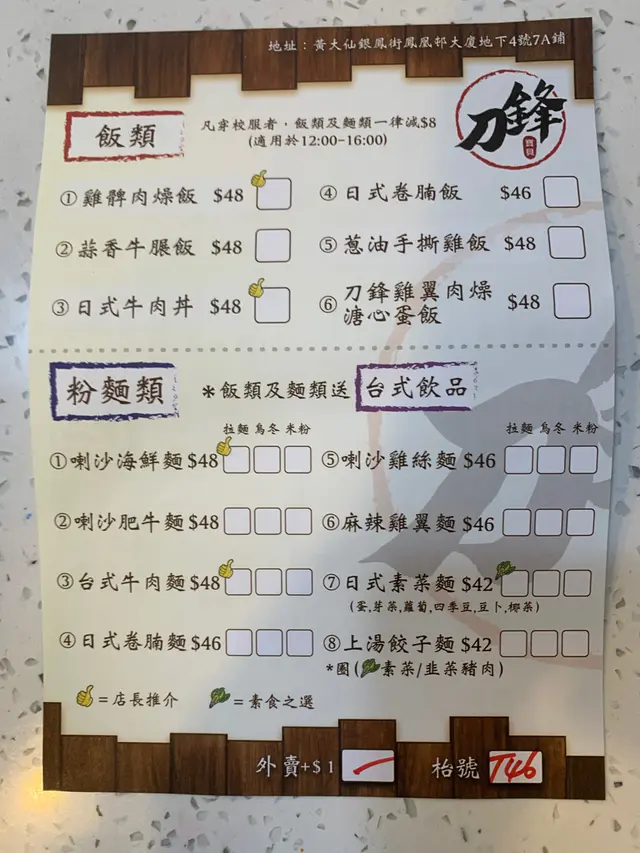 地址：黃大仙銀鳳街鳳凰邨大廈地下4號7A鋪
刀鋒
寶貝
飯類
凡穿校服者，飯類及麵類一律減$8
(適用於12:00-16:00)
①雞髀肉燥飯 $48
④日式卷腩飯 $46
②蒜香牛脹飯 $48
⑤蔥油手撕雞飯 $48
③日式牛肉丼 $48
⑥刀鋒雞翼肉燥
溏心蛋飯 $48
粉麵類
*飯類及麵類送 台式飲品
拉麵 烏冬 米粉
拉麵 烏冬 米粉
①喇沙海鮮麵 $48
⑤喇沙雞絲麵 $46
②喇沙肥牛麵 $48
⑥麻辣雞翼麵 $46
③台式牛肉麵 $48
⑦日式素菜麵 $42
(蛋,芽菜,蘿蔔,四季豆,豆卜,椰菜)
④日式卷腩麵 $46
⑧上湯餃子麵 $42
*圈(素菜/韭菜豬肉)
=店長推介
=素食之選
外賣+$1
枱號 T46